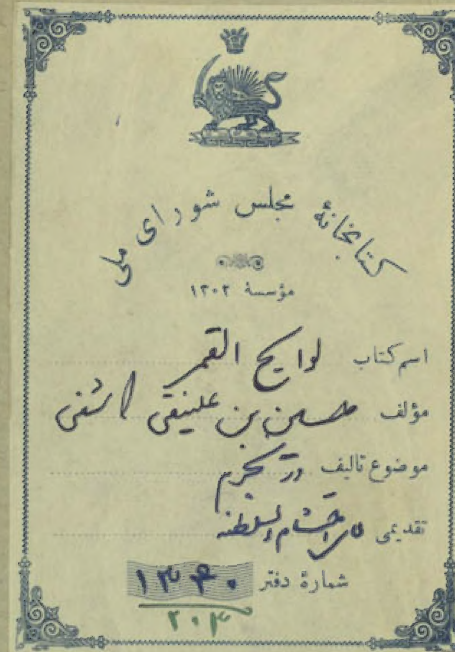 کتابخانهٔ مجلس شورای ملی
مؤسسهٔ ۱۳۰۲
اسم کتاب لوایح القمر
مؤلف حسین بن علینقی کاشفی
موضوع تالیف در نجوم
تقدیمی احتشام السلطنه
شمارهٔ دفتر ۱۳۴۰
۲۰۴